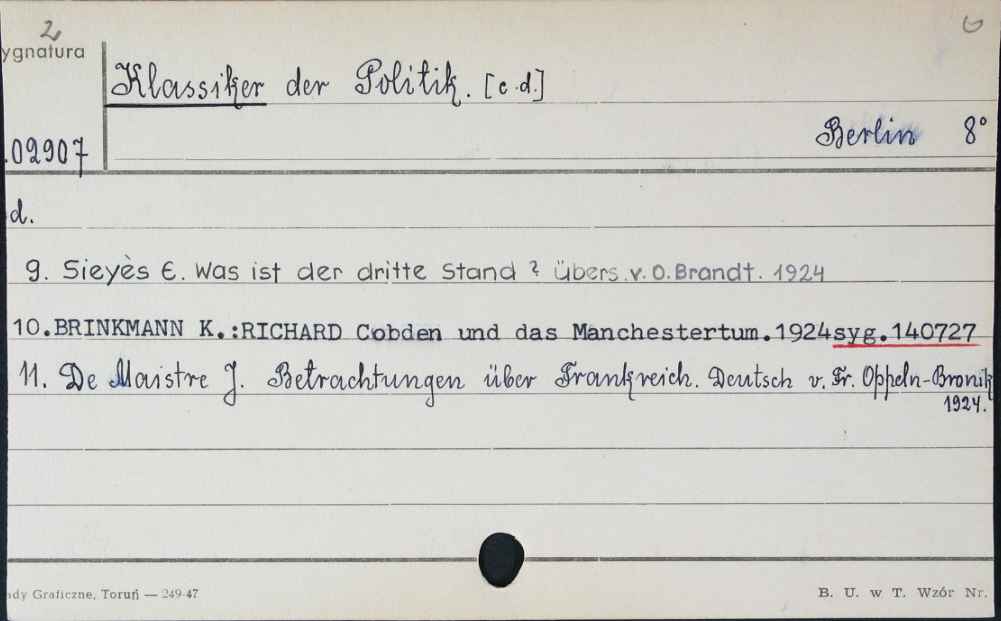 2
ygnatura
Klassiker der Politik. [c.d.]
Berlin 8°
.02907
d.
9. Sieyès E. Was ist der dritte Stand? Übers. v. O. Brandt. 1924
10.BRINKMANN K.:RICHARD Cobden und das Manchestertum.1924syg.140727
11. De Maistre J. Betrachtungen über Frankreich. Deutsch v. Fr. Oppeln-Bronik
1924.
ady Graficzne, Toruń — 249-47
B. U. w T. Wzór Nr.